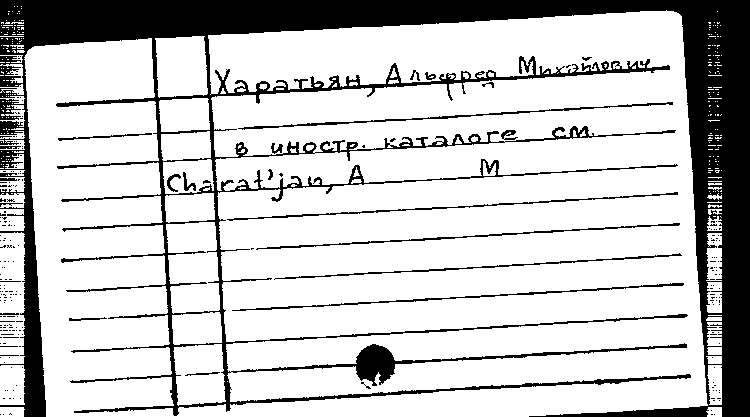 Харатьян, Альфред Михайлович
в иностр. каталоге см.
Charat'jan, A M